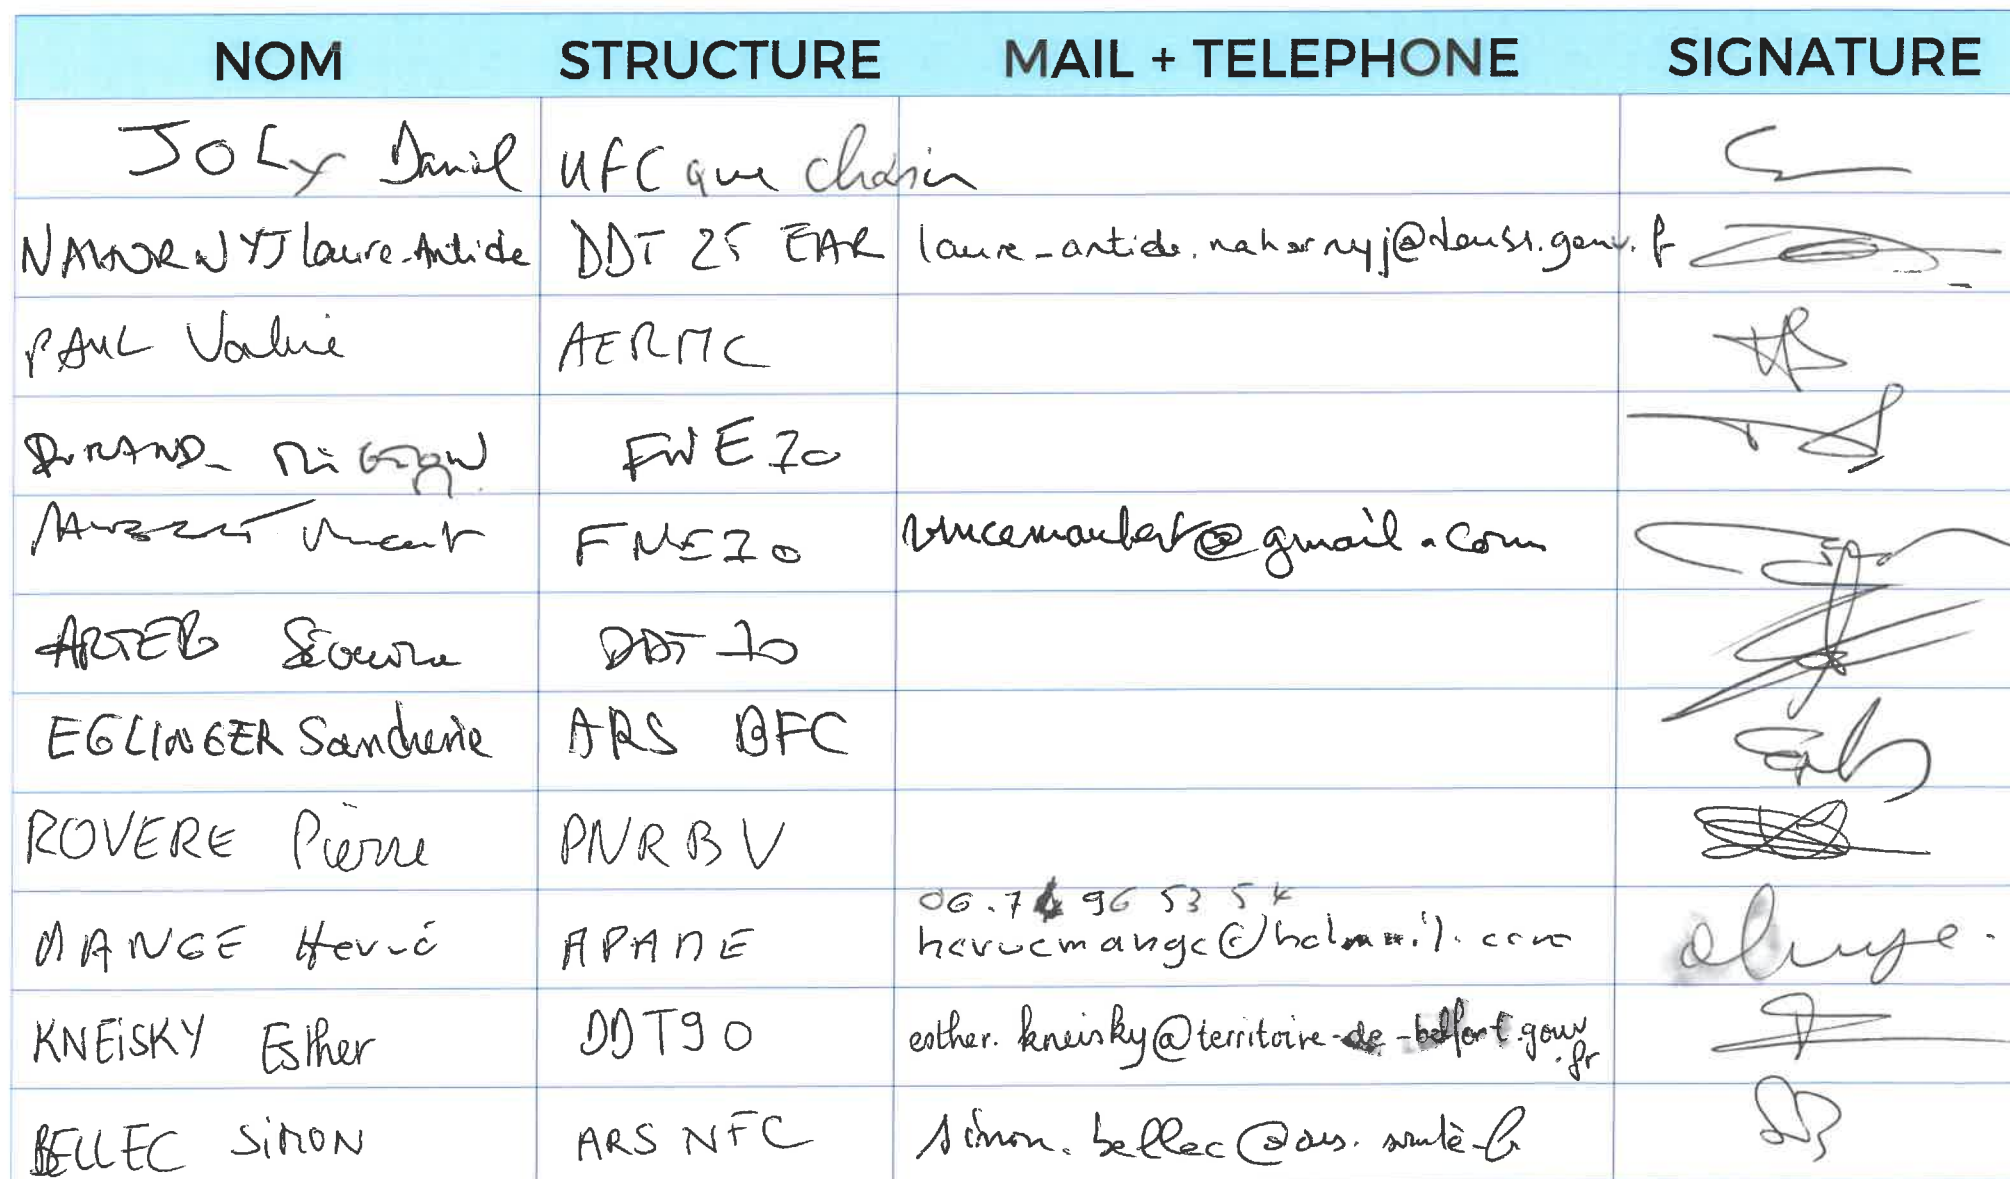 NOM STRUCTURE MAIL + TELEPHONE SIGNATURE
JOLY Daniel UFC que choisir
NAHORNYJ Laure-Antide DDT 25 EAR laure-antide.nahornyj@doubs.gouv.fr
PAUL Valérie AERMC
DURAND FNE 70
Vincent FNE70 vincemaubert@gmail.com
ARTER DDT 70
EGLINGER Sandrine ARS BFC
ROVERE Pierre PNRBV
06.74 96 53 54
MANGE Hervé APAME hervemange@hotmail.com
KNEiSKY Esther DDT90 esther.kneisky@territoire-de-belfort.gouv
.fr
BELLEC SiMON ARS NFC simon.bellec@ars.sante.fr